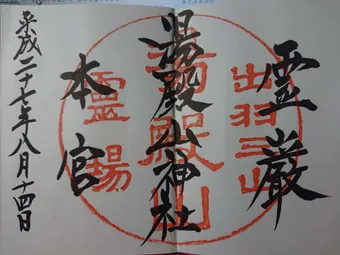 霊巌
出羽三山
湯殿山神社
湯殿山
本宮
霊場
平成二十七年八月十四日